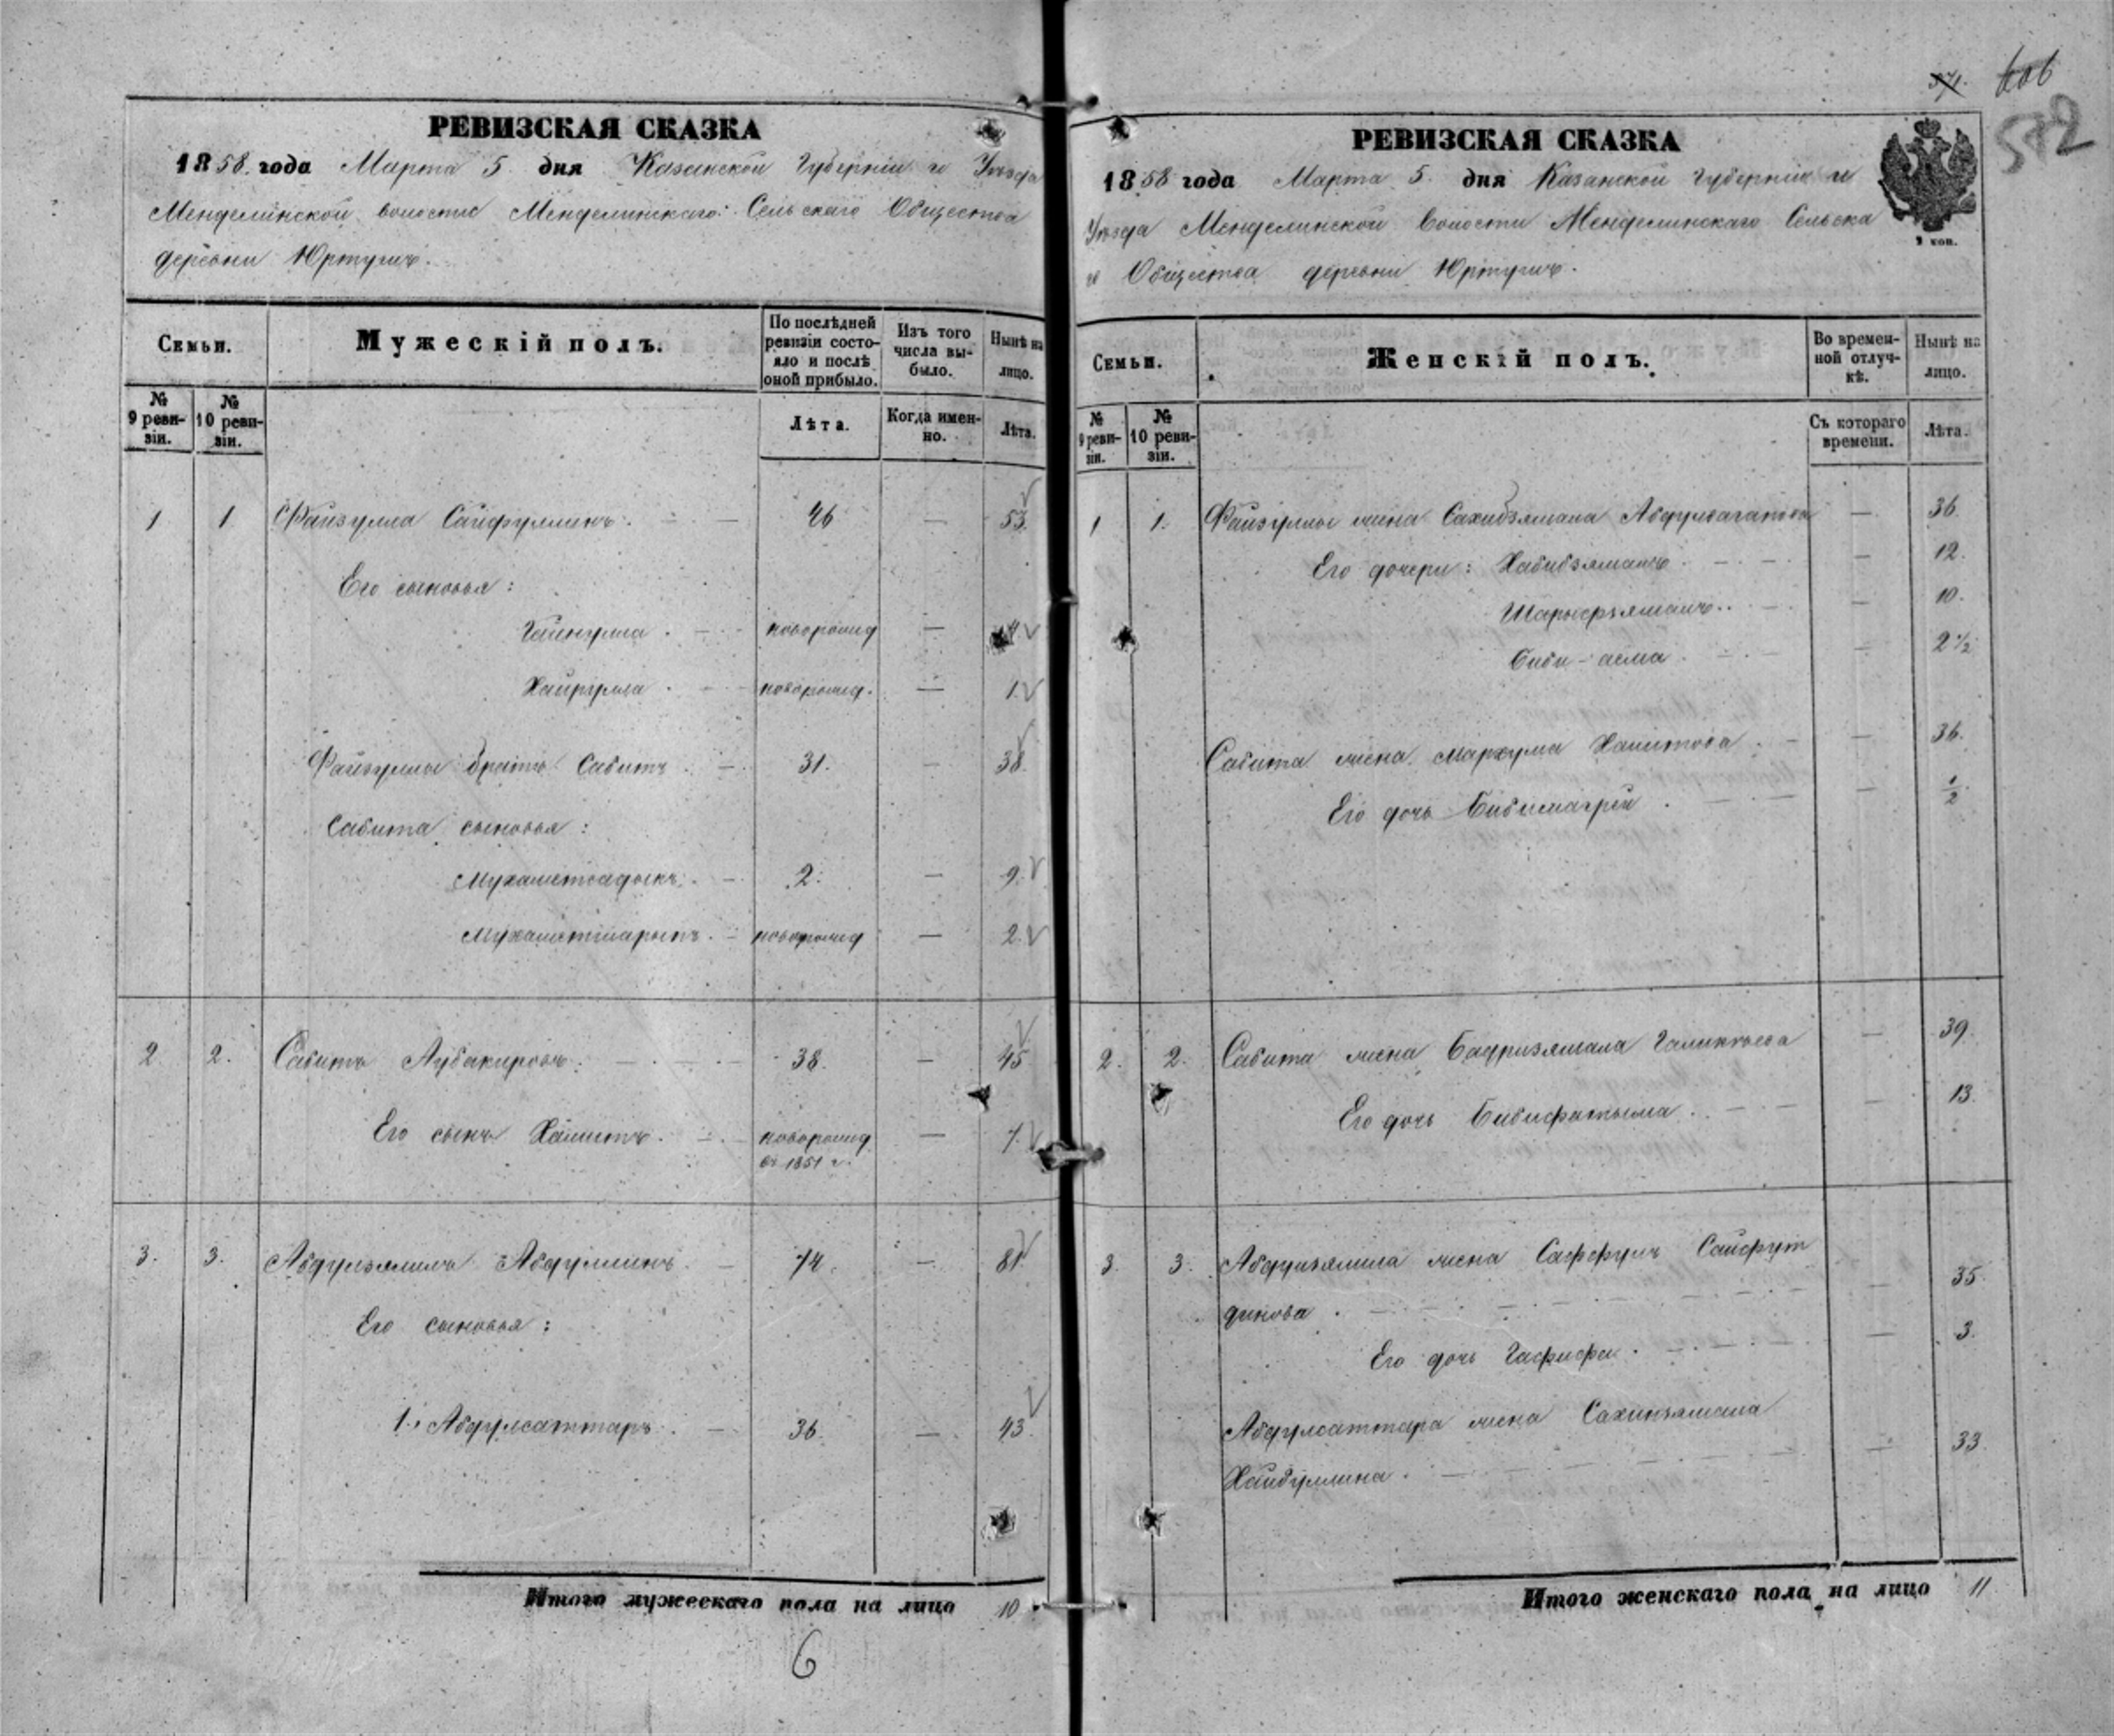 РЕВИЗСКАЯ СКАЗКА
1858 года Марта 5 дня Казанской Губерніи и Уѣзда
Менделинской волости Менделинскаго Сельскаго Общества
деревни Юртушъ.
Семьи.
Мужескій полъ.
По послѣдней ревизіи состояло и послѣ оной прибыло.
Изъ того числа выбыло.
Нынѣ на лицо.
№ 9 ревизіи.
№ 10 ревизіи.
Лѣта.
Когда именно.
Лѣта.
1 1 Файзулла Сайфуллинъ. 46 — 53.
Его сыновья:
новорожд —
Хайрулла новорожд. — 1.
Файзуллы братъ Сабитъ 31. — 38.
Сабита сыновья:
Мухаметсадыкъ. 2. — 9.
Мухаметшарыпъ. новорожд — 2.
2 2. Сабитъ Аубакировъ. 38. — 45
Его сынъ Хамитъ. новорожд — 7.
въ 1851 г.
3. 3. Абдулзялилъ Абдуллинъ. 74. — 81.
Его сыновья:
1. Абдулсаттаръ. 36. — 43.
Итого мужескаго пола на лицо 10.
6
606
572
РЕВИЗСКАЯ СКАЗКА
1858 года Марта 5. дня Казанской Губерніи и
Уѣзда Менделинской Волости Менделинскаго Сельска
го Общества деревни Юртушъ.
Семьи.
Женскій полъ.
Во временной отлучкѣ.
Нынѣ на лицо.
№ 9 ревизіи.
№ 10 ревизіи.
Съ котораго времени.
Лѣта.
1 1. Файзуллы жена Сахибзямала — 36.
Его дочери: Хабибзямалъ — 12.
Шарыфзямалъ. — 10.
Биби-асма — 2 1/2
Сабита жена Мархума Хамитова — 36.
Его дочь — 1/2.
2. 2. Сабита жена Бадризямала — 39.
Его дочь Бибифатыма. — 13.
3. 3. Абдулзялила жена Сайфут
динова. — 35
Его дочь Гафифа. — 3.
Абдулсаттара жена
Хайбуллина. — 33.
Итого женскаго пола на лицо 11